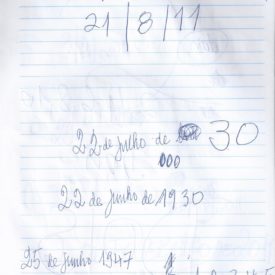 21/8/11
22 de Julho de 30
000
22 de Junho de 1930
25 de Junho 1947 1